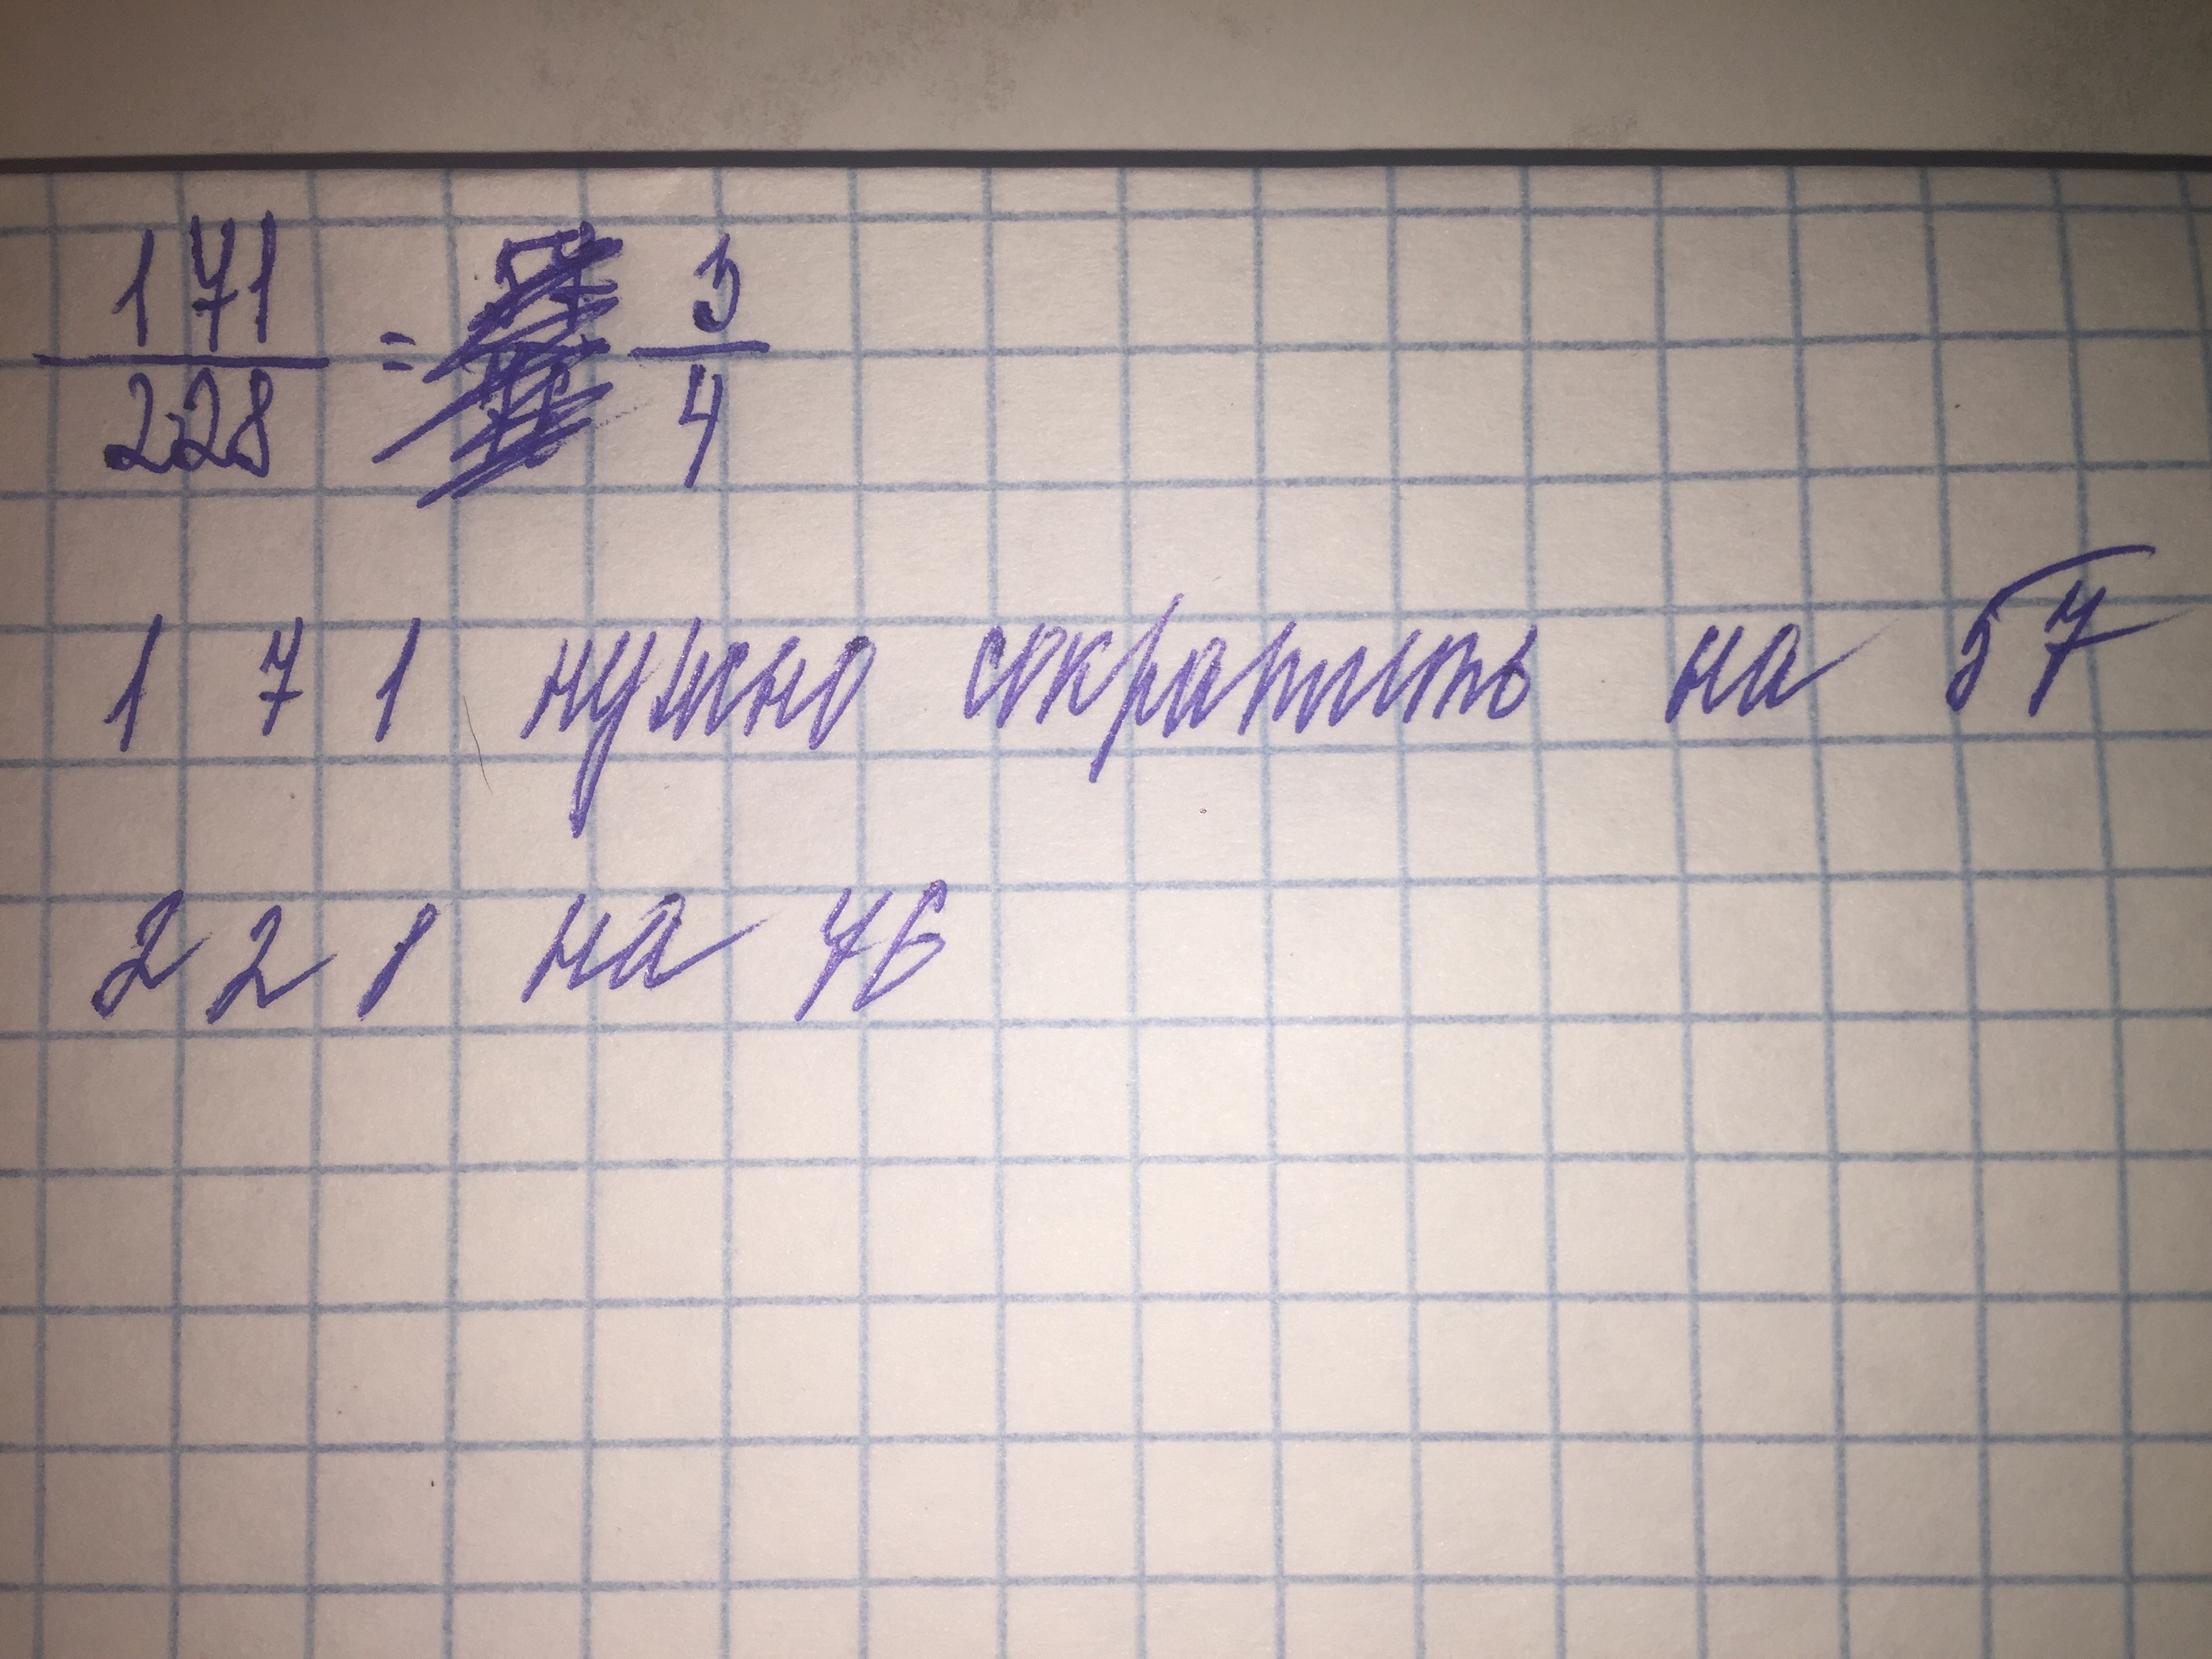 171/228 = 3/4
171 нужно сократить на 57
228 на 76